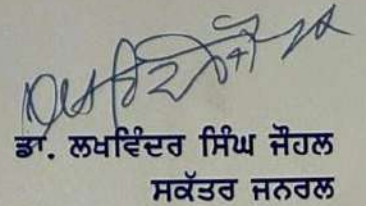 ਡਾ. ਲਖਵਿੰਦਰ ਸਿੰਘ ਜੌਹਲ
ਸਕੱਤਰ ਜਨਰਲ